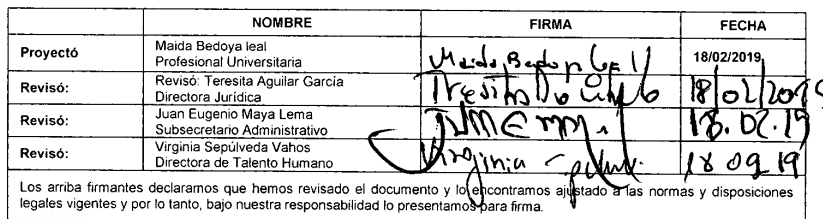 NOMBRE FIRMA FECHA
Proyectó Maida Bedoya leal
Profesional Universitaria Maida Bedoya Leal 18/02/2019
Revisó: Revisó: Teresita Aguilar García
Directora Jurídica 18/02/2019
Revisó: Juan Eugenio Maya Lema
Subsecretario Administrativo 18.02.19
Revisó: Virginia Sepúlveda Vahos
Directora de Talento Humano Virginia 18 09 19
Los arriba firmantes declaramos que hemos revisado el documento y lo encontramos ajustado a las normas y disposiciones
legales vigentes y por lo tanto, bajo nuestra responsabilidad lo presentamos para firma.